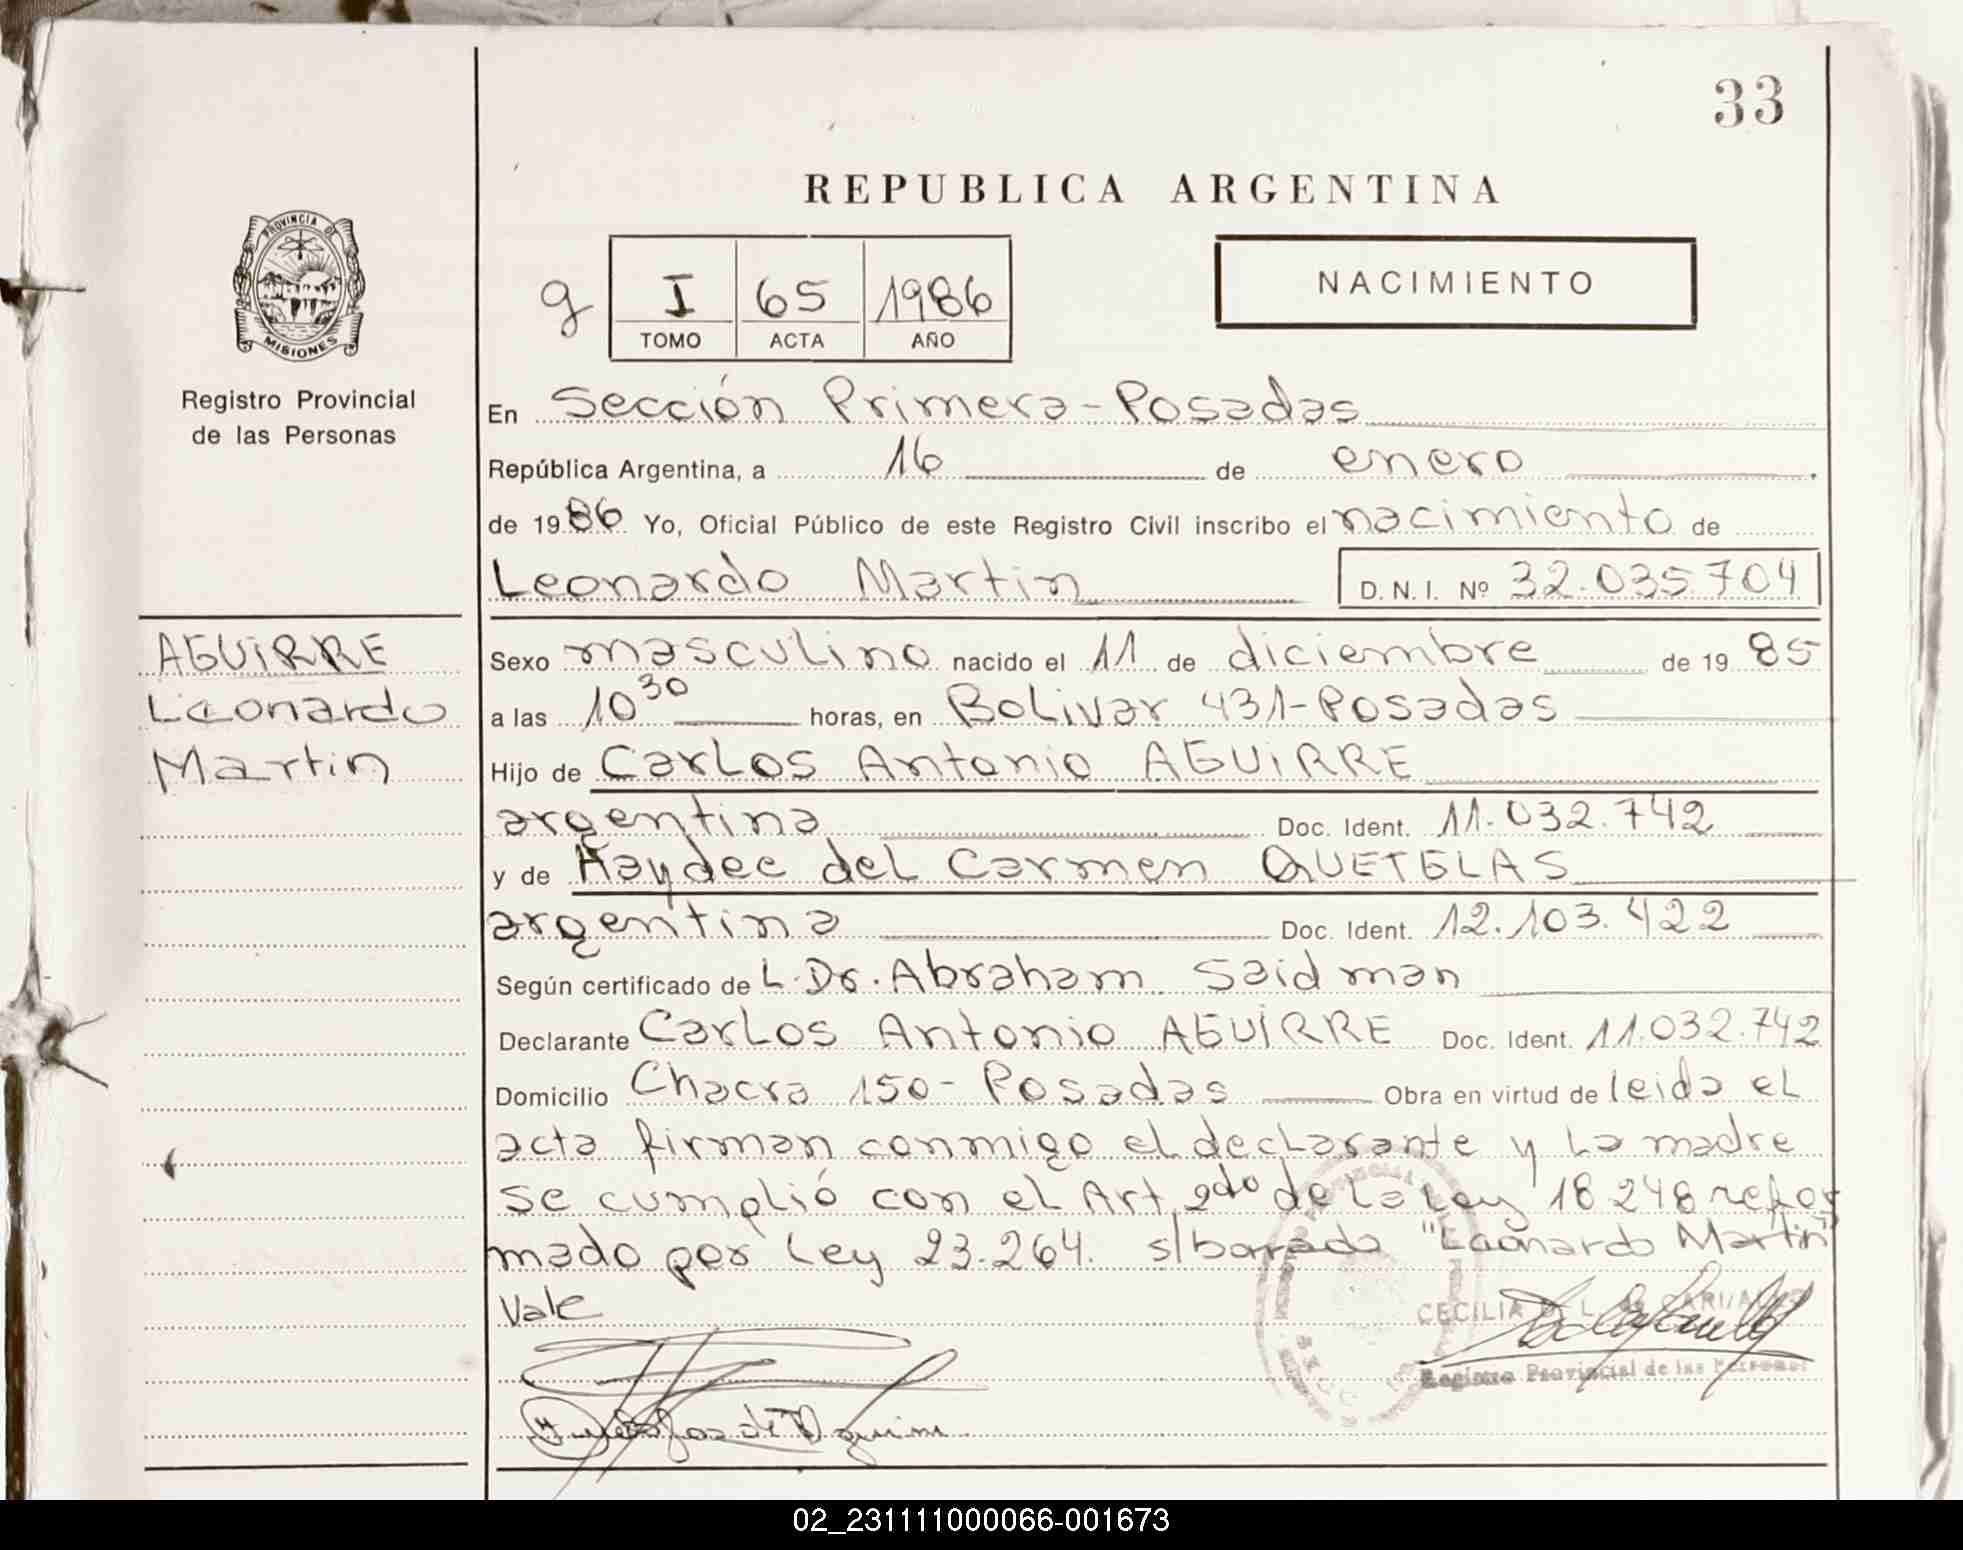 33
REPUBLICA ARGENTINA
PROVINCIA DE
MISIONES
Registro Provincial
de las Personas
g
I 65 1986
TOMO ACTA AÑO
NACIMIENTO
En Sección Primera-Posadas
República Argentina, a 16 de enero
de 1986 Yo, Oficial Público de este Registro Civil inscribo el nacimiento de
Leonardo Martin D.N.I. Nº 32.035.704
AGUIRRE
Leonardo
Martin
Sexo masculino nacido el 11 de diciembre de 1985
a las 10 30 horas, en Bolivar 431-Posadas
Hijo de Carlos Antonio AGUIRRE
argentina Doc. Ident. 11.032.742
y de Haydee del Carmen QUETGLAS
argentina Doc. Ident. 12.103.422
Según certificado de L. Dr. Abraham Saidman
Declarante Carlos Antonio AGUIRRE Doc. Ident. 11.032.742
Domicilio Chacra 150-Posadas Obra en virtud de leida el
acta firman conmigo el declarante y la madre
se cumplió con el Art. 2do de la Ley 18 248 refor
mado por Ley 23.264. s/borrado "Leonardo Martin"
Vale
CECILIA
Registro Provincial de las Personas
02_231111000066-001673